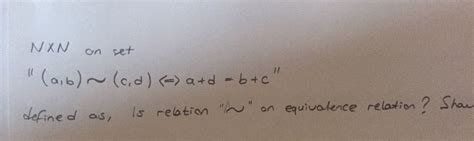 NXN on set
"(a,b) ~ (c,d) <=> a+d = b+c"
defined as, Is relation "~" an equivalence relation? Show